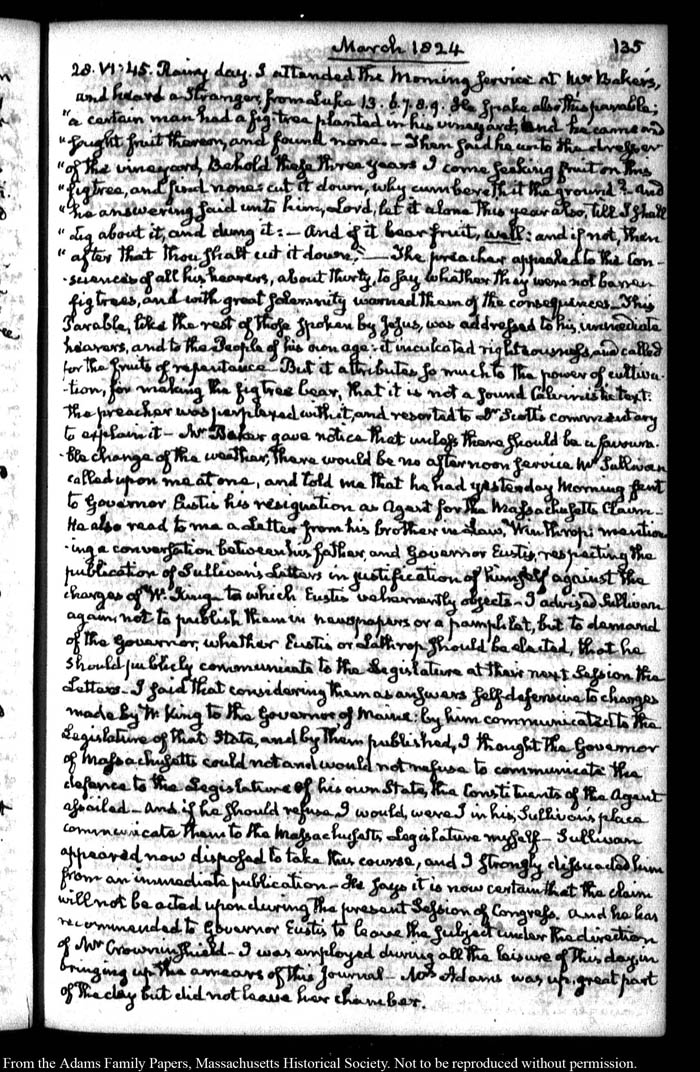 March 1824
135
28. VI:45. Rainy day. I attended the Morning service at Mr Baker's,
and heard a Stranger, from Luke 13. 6.7.8.9. He spake also this parable;
"a certain man had a fig-tree planted in his vineyard; and he came and
"sought fruit thereon, and found none. — Then said he unto the dresser
"of the vineyard, Behold these three years I come seeking fruit on this
"figtree, and find none: cut it down, why cumbereth it the ground? And
"he answering said unto him, Lord, let it alone this year also, till I shall
"dig about it, and dung it: — And if it bear fruit, well: and if not, then
"after that thou shalt cut it down." — The preacher appealed to the Con-
-sciences of all his hearers, about thirty, to say whether they were not barren
figtrees, and with great solemnity warned them of the consequences — This
Parable, like the rest of those spoken by Jesus, was addressed to his immediate
hearers, and to the People of his own age: it inculcated righteousness, and called
for the fruits of repentance — But it attributes so much to the power of cultiva-
-tion, for making the figtree bear, that it is not a sound Calvinistic text.
The preacher was perplexed with it, and resorted to Dr Scott's commentary
to explain it — Mr Baker gave notice that unless there should be a favoura-
-ble change of the weather, there would be no afternoon service Mr Sullivan
called upon me at one, and told me that he had yesterday Morning sent
to Governor Eustis his resignation as Agent for the Massachusetts Claim —
He also read to me a Letter from his brother in Law, Winthrop; mention-
-ing a conversation between his father and Governor Eustis, respecting the
publication of Sullivan's Letters in justification of himself against the
charges of W. King — to which Eustis vehemently objects — I advised Sullivan
again, not to publish them in newspapers or a pamphlet, but to demand
of the Governor, whether Eustis or Lathrop should be elected, that he
should publicly communicate to the Legislature at their next Session the
Letters — I said that considering them as answers self-defensive to charges
made by W. King to the Governor of Maine: by him communicated to the
Legislature of that State, and by them published, I thought the Governor
of Massachusetts could not and would not refuse to communicate the
defence to the Legislature of his own State, the Constituents of the Agent
assailed — And if he should refuse, I would, were I in his, Sullivan's place
communicate them to the Massachusetts Legislature myself — Sullivan
appeared now disposed to take this course, and I strongly dissuaded him
from an immediate publication — He says it is now certain that the claim
will not be acted upon during the present Session of Congress, and he has
recommended to Governor Eustis to leave the subject under the direction
of Mr Crowninshield — I was employed during all the leisure of this day, in
bringing up the arrears of this Journal — Mrs Adams was up, great part
of the day but did not leave her chamber.
From the Adams Family Papers, Massachusetts Historical Society. Not to be reproduced without permission.